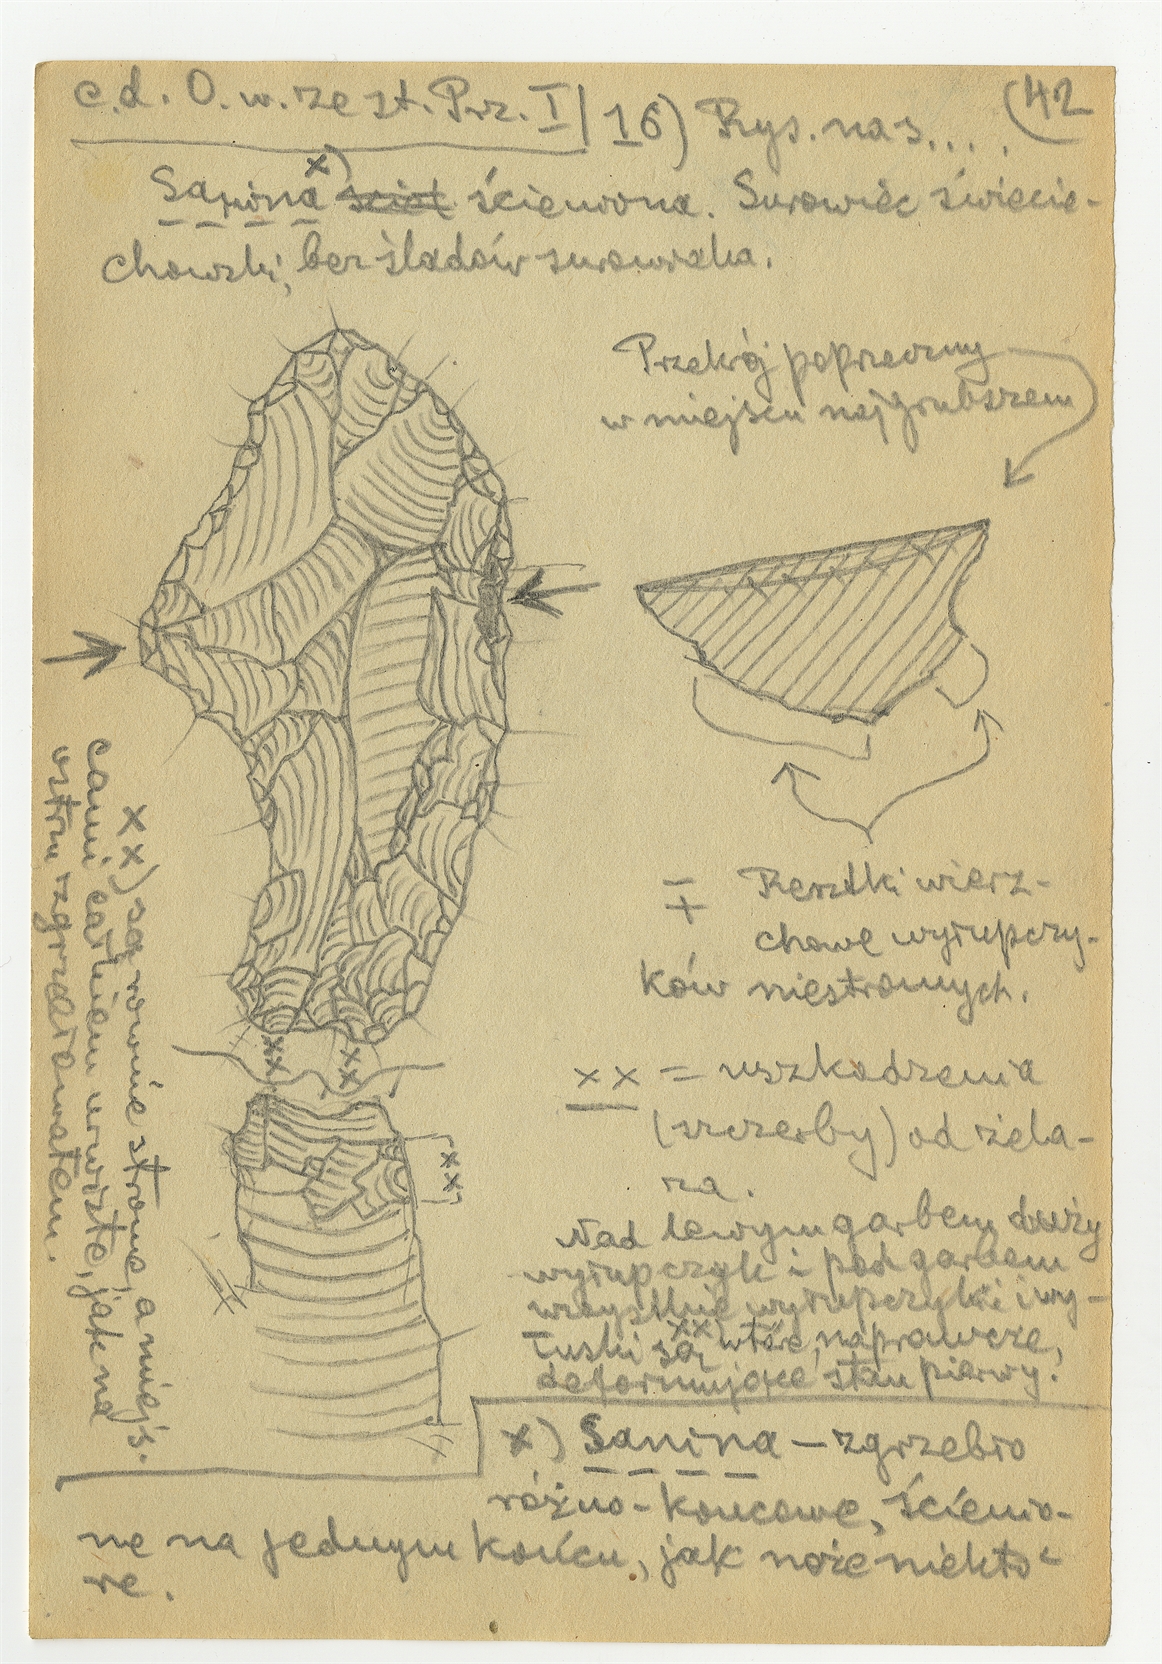 c.d. O. w. ze st. Prz. I/16) Rys. na s.... (42
Sanina x) ścieniona. Surowiec święcie-
chowski, bez śladów surowiaka.
Przekrój poprzeczny
w miejscu najgrubszem
∓ Resztki wierz-
chowe wyłupczy-
ków niestromych.
xx = uszkodzenia
(szczerby) od żela-
za.
Nad lewym garbem duży
wyłupczyk i pod garbem
wszystkie wyłupczyki i wy-
łuski są xx wtórne, naprawcze,
deformujące stan pierwy.
xx
xx
[xx]
xx) są równie strome, a miejs-
cami całkiem urwiste, jak na
ostrzu zgrzebłowatem.
x) Sanina – zgrzebło
różno-końcowe, ścienio-
ne na jednym końcu, jak noże niektó-
re.